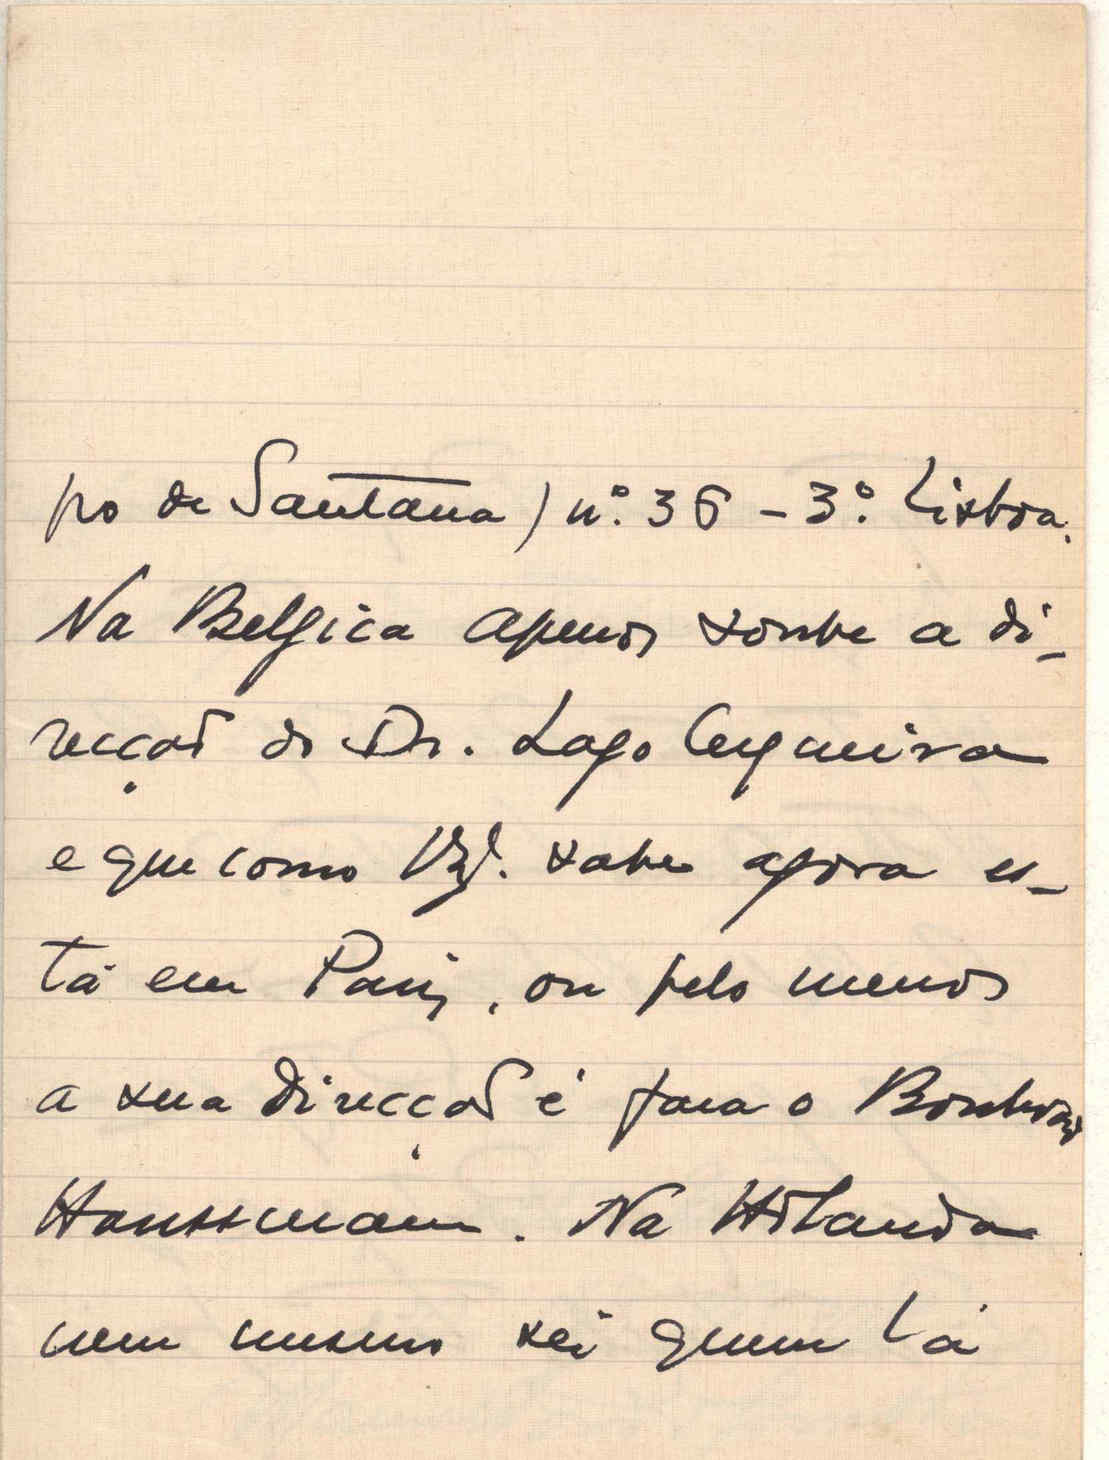 po de Santana) nº. 36 - 3º. Lisboa.
Na Belgica apenas soube a di-
recção do Dr. Lago Cerqueira
e que como V. sabe agora es-
tá em Paris, ou pelo menos
a sua direcção é para o Boulevard
Haussmann. Na Holanda
nem mesmo sei quem lá